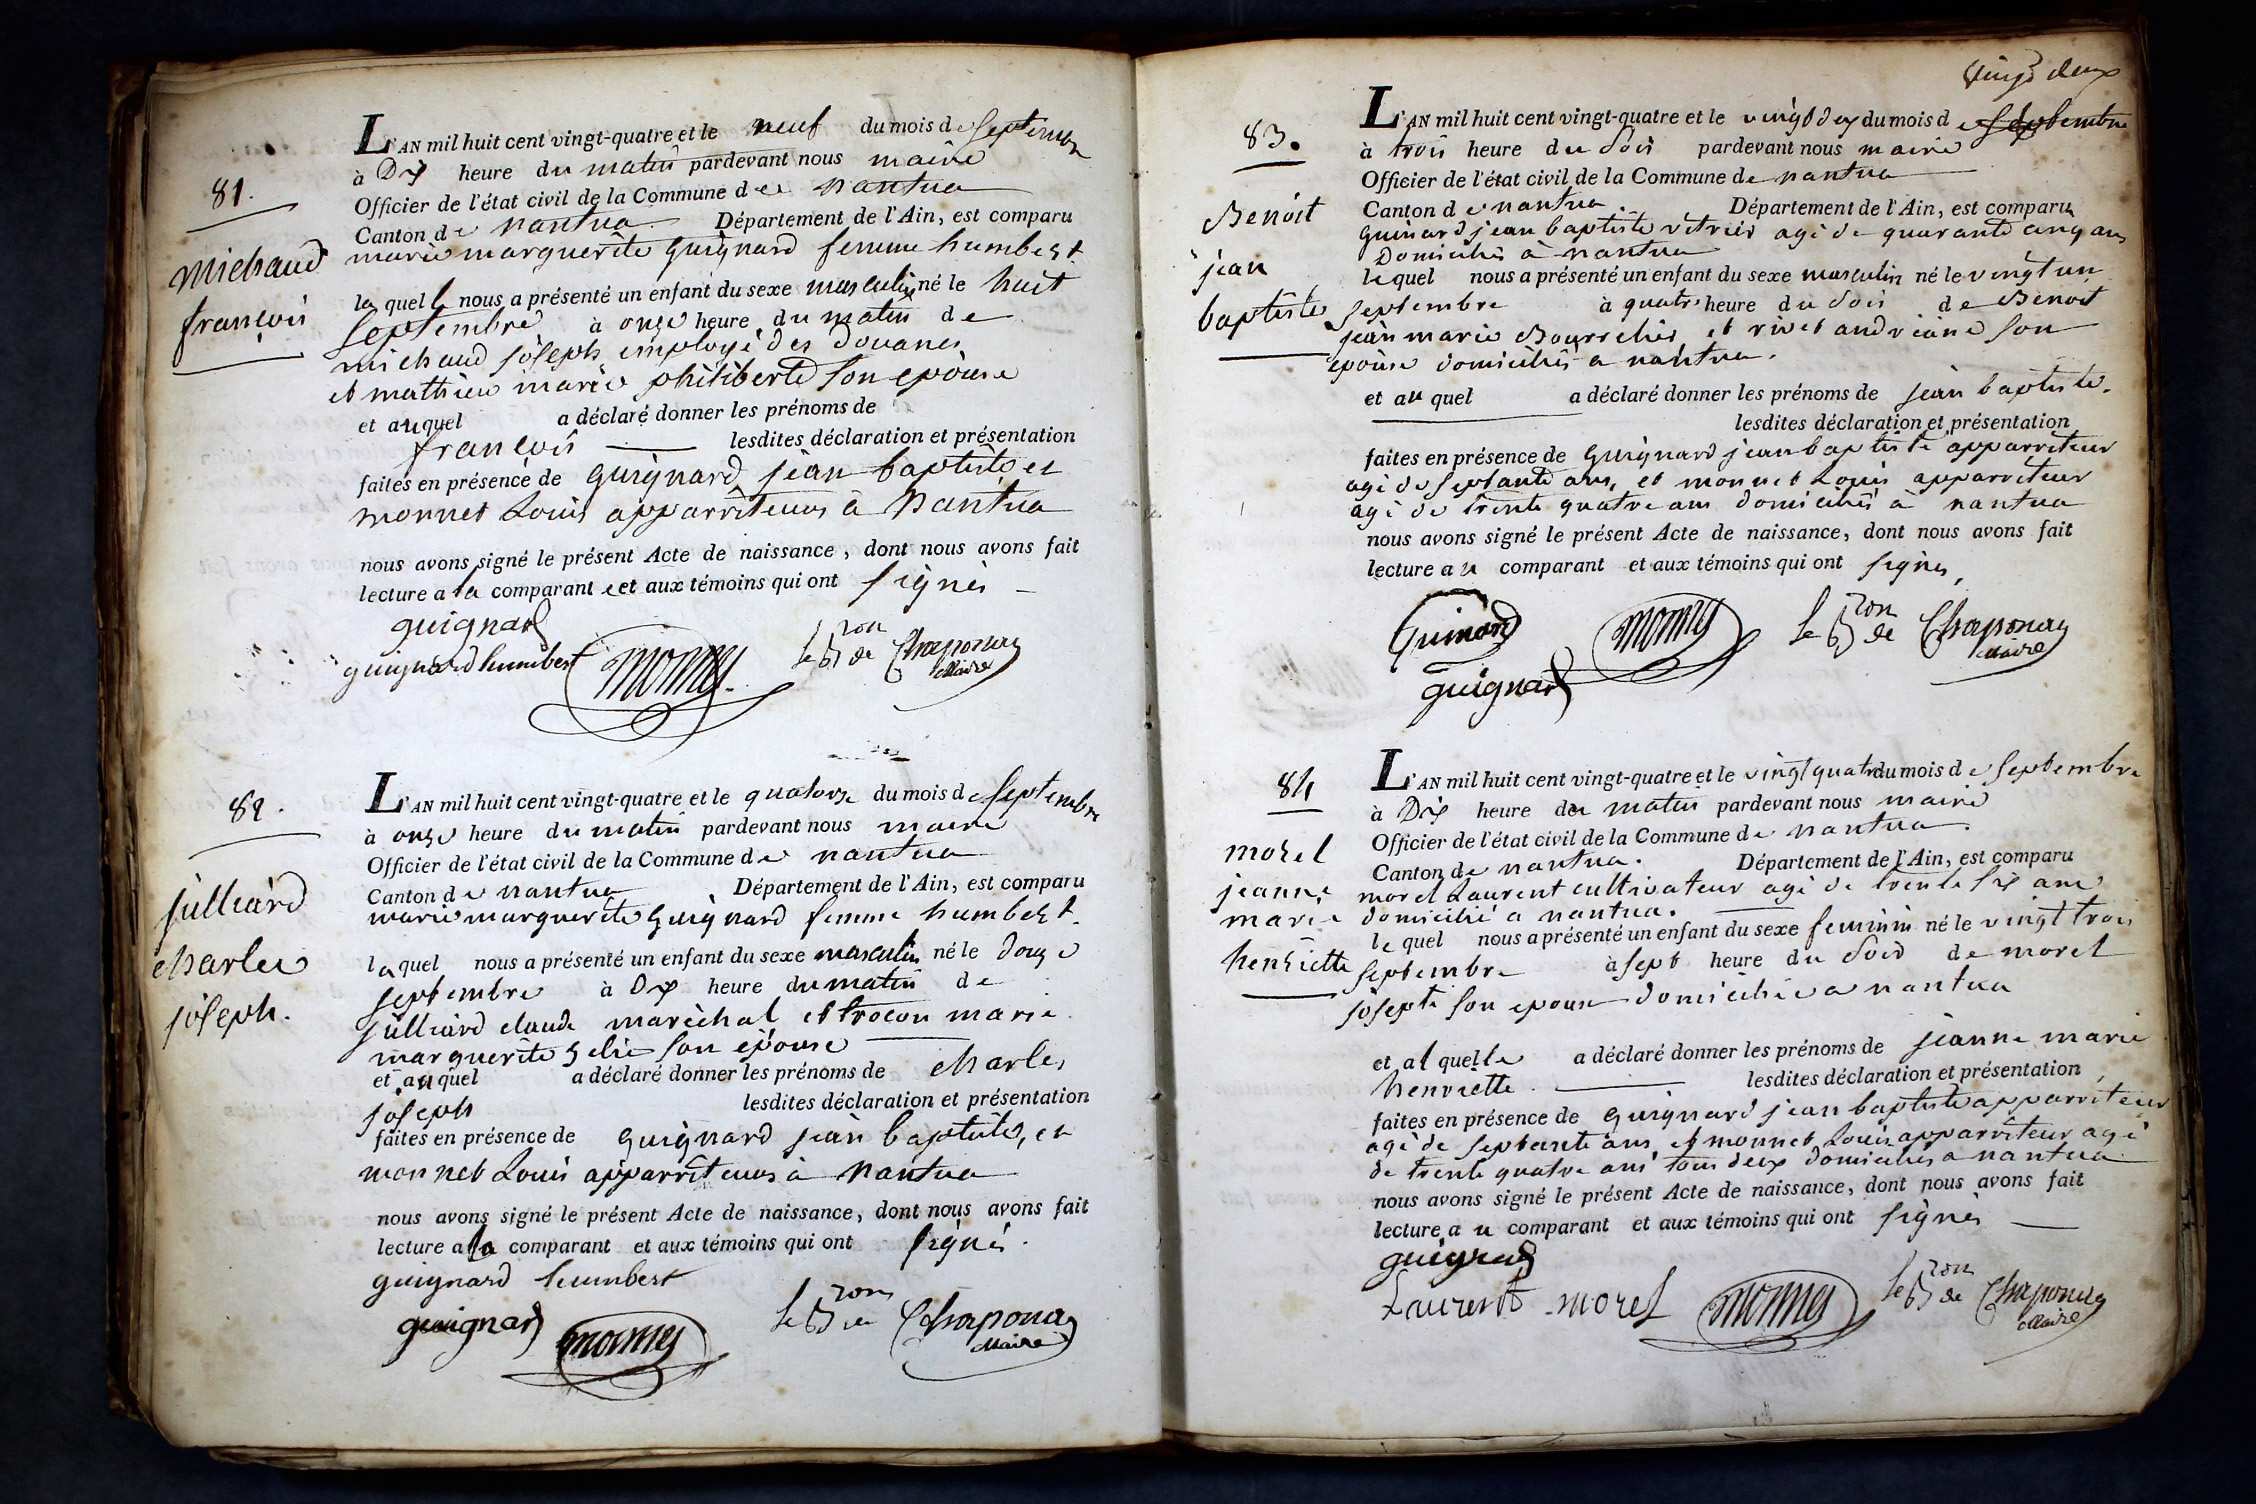 81.
michaud
françois
L'AN mil huit cent vingt-quatre et le neuf du mois de septembre
à Dix heure du matin pardevant nous maire
Officier de l'état civil de la Commune de nantua
Canton de nantua. Département de l'Ain, est comparu
marie marguerite guignard femme humbert.
la quelle nous a présenté un enfant du sexe masculin né le huit
septembre à onze heure du matin de
michaud joseph employé des douanes
et mathieu marie philiberte son epouse
et auquel a déclaré donner les prénoms de
françois lesdites déclaration et présentation
faites en présence de guignard jean baptiste et
monnet Louis apparriteurs à nantua
nous avons signé le présent Acte de naissance, dont nous avons fait
lecture a la comparante et aux témoins qui ont signés
guignard
guignard humbert monnet le Bron de Chaponay
Maire
82.
julliard
charles
joseph.
L'AN mil huit cent vingt-quatre et le quatorze du mois de septembre
à onze heure du matin pardevant nous maire
Officier de l'état civil de la Commune de nantua
Canton de nantua Département de l'Ain, est comparu
marie marguerite guignard femme humbert.
la quel nous a présenté un enfant du sexe masculin né le douze
septembre à Dix heure du matin de
julliard claude maréchal et trocon marie
marguerite son épouse
et auquel a déclaré donner les prénoms de charles
joseph lesdites déclaration et présentation
faites en présence de guignard jean baptiste, et
monnet Louis apparriteurs à nantua
nous avons signé le présent Acte de naissance, dont nous avons fait
lecture a la comparant et aux témoins qui ont signés.
guignard humbert
guignard monnet le Bron de Chaponay
Maire
vingt deux
83.
Benoit
jean
baptiste
L'AN mil huit cent vingt-quatre et le vingt deux du mois de septembre
à trois heure du soir pardevant nous maire
Officier de l'état civil de la Commune de nantua
Canton de nantua. Département de l'Ain, est comparu
guinard jean baptiste vitrier agé de quarante cinq ans
Domicilié à nantua
le quel nous a présenté un enfant du sexe masculin né le vingt un
septembre à quatre heure du soir de Benoit
jean marie Bourrelier et rivet andréane son
epouse domiciliés a nantua.
et au quel a déclaré donner les prénoms de jean baptiste.
lesdites déclaration et présentation
faites en présence de guignard jean baptiste apparriteur
agé de septante ans, et monnet Louis apparriteur
agé de trente quatre ans domiciliés à nantua
nous avons signé le présent Acte de naissance, dont nous avons fait
lecture au comparant et aux témoins qui ont signés
Guinard monnet le Bron de Chaponay
Maire
guignard
84
morel
jeanne
marie
henriette
L'AN mil huit cent vingt-quatre et le vingt quatre du mois de septembre
à Dix heure du matin pardevant nous maire
Officier de l'état civil de la Commune de nantua.
Canton de nantua. Département de l'Ain, est comparu
morel Laurent cultivateur agé de trente six ans
domicilié a nantua.
le quel nous a présenté un enfant du sexe feminin né le vingt trois
septembre à sept heure du soir de morel
josepte son epouse domiciliée a nantua
et al quelle a déclaré donner les prénoms de jeanne marie
henriette. lesdites déclaration et présentation
faites en présence de guignard jean baptiste apparriteur
agé de septante ans et monnet Louis apparriteur agé
de trente quatre ans tous deux domiciliés a nantua
nous avons signé le présent Acte de naissance, dont nous avons fait
lecture au comparant et aux témoins qui ont signés
guignard
Laurent morel monnet le Bron de Chaponay
Maire